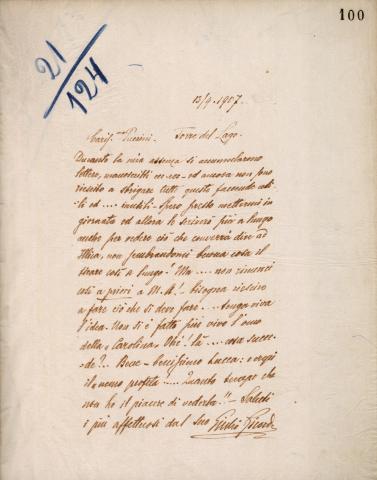 100
21/124
13/9.1907.
Carissmo Puccini. Torre del Lago.
Durante la mia assenza si accumularono
lettere, manoscritti ecc. ecc. ed ancora non sono
riescito a sbrigare tutte queste faccende uti-
li ed .... inutili. Spero presto mettermi in
giornata ed allora le scriverò più a lungo
anche per vedere ciò che converrà dire ad
Illica, non sembrandomi buona cosa il
tirare così a lungo! Ma .... non rinunci
così a priori a M. A. - Bisogna riescire
a fare ciò che si deve fare .... tenga viva
l'idea. Non si è fatto più vivo l'uomo
della Carolina. Ohè! là .... cosa succe-
de?.. Bene - benissimo Lucca: e ogni
.... Quanto tempo che
non ho il piacere di vederla!! - Saluti
i più affettuosi dal suo Giulio Ricordi